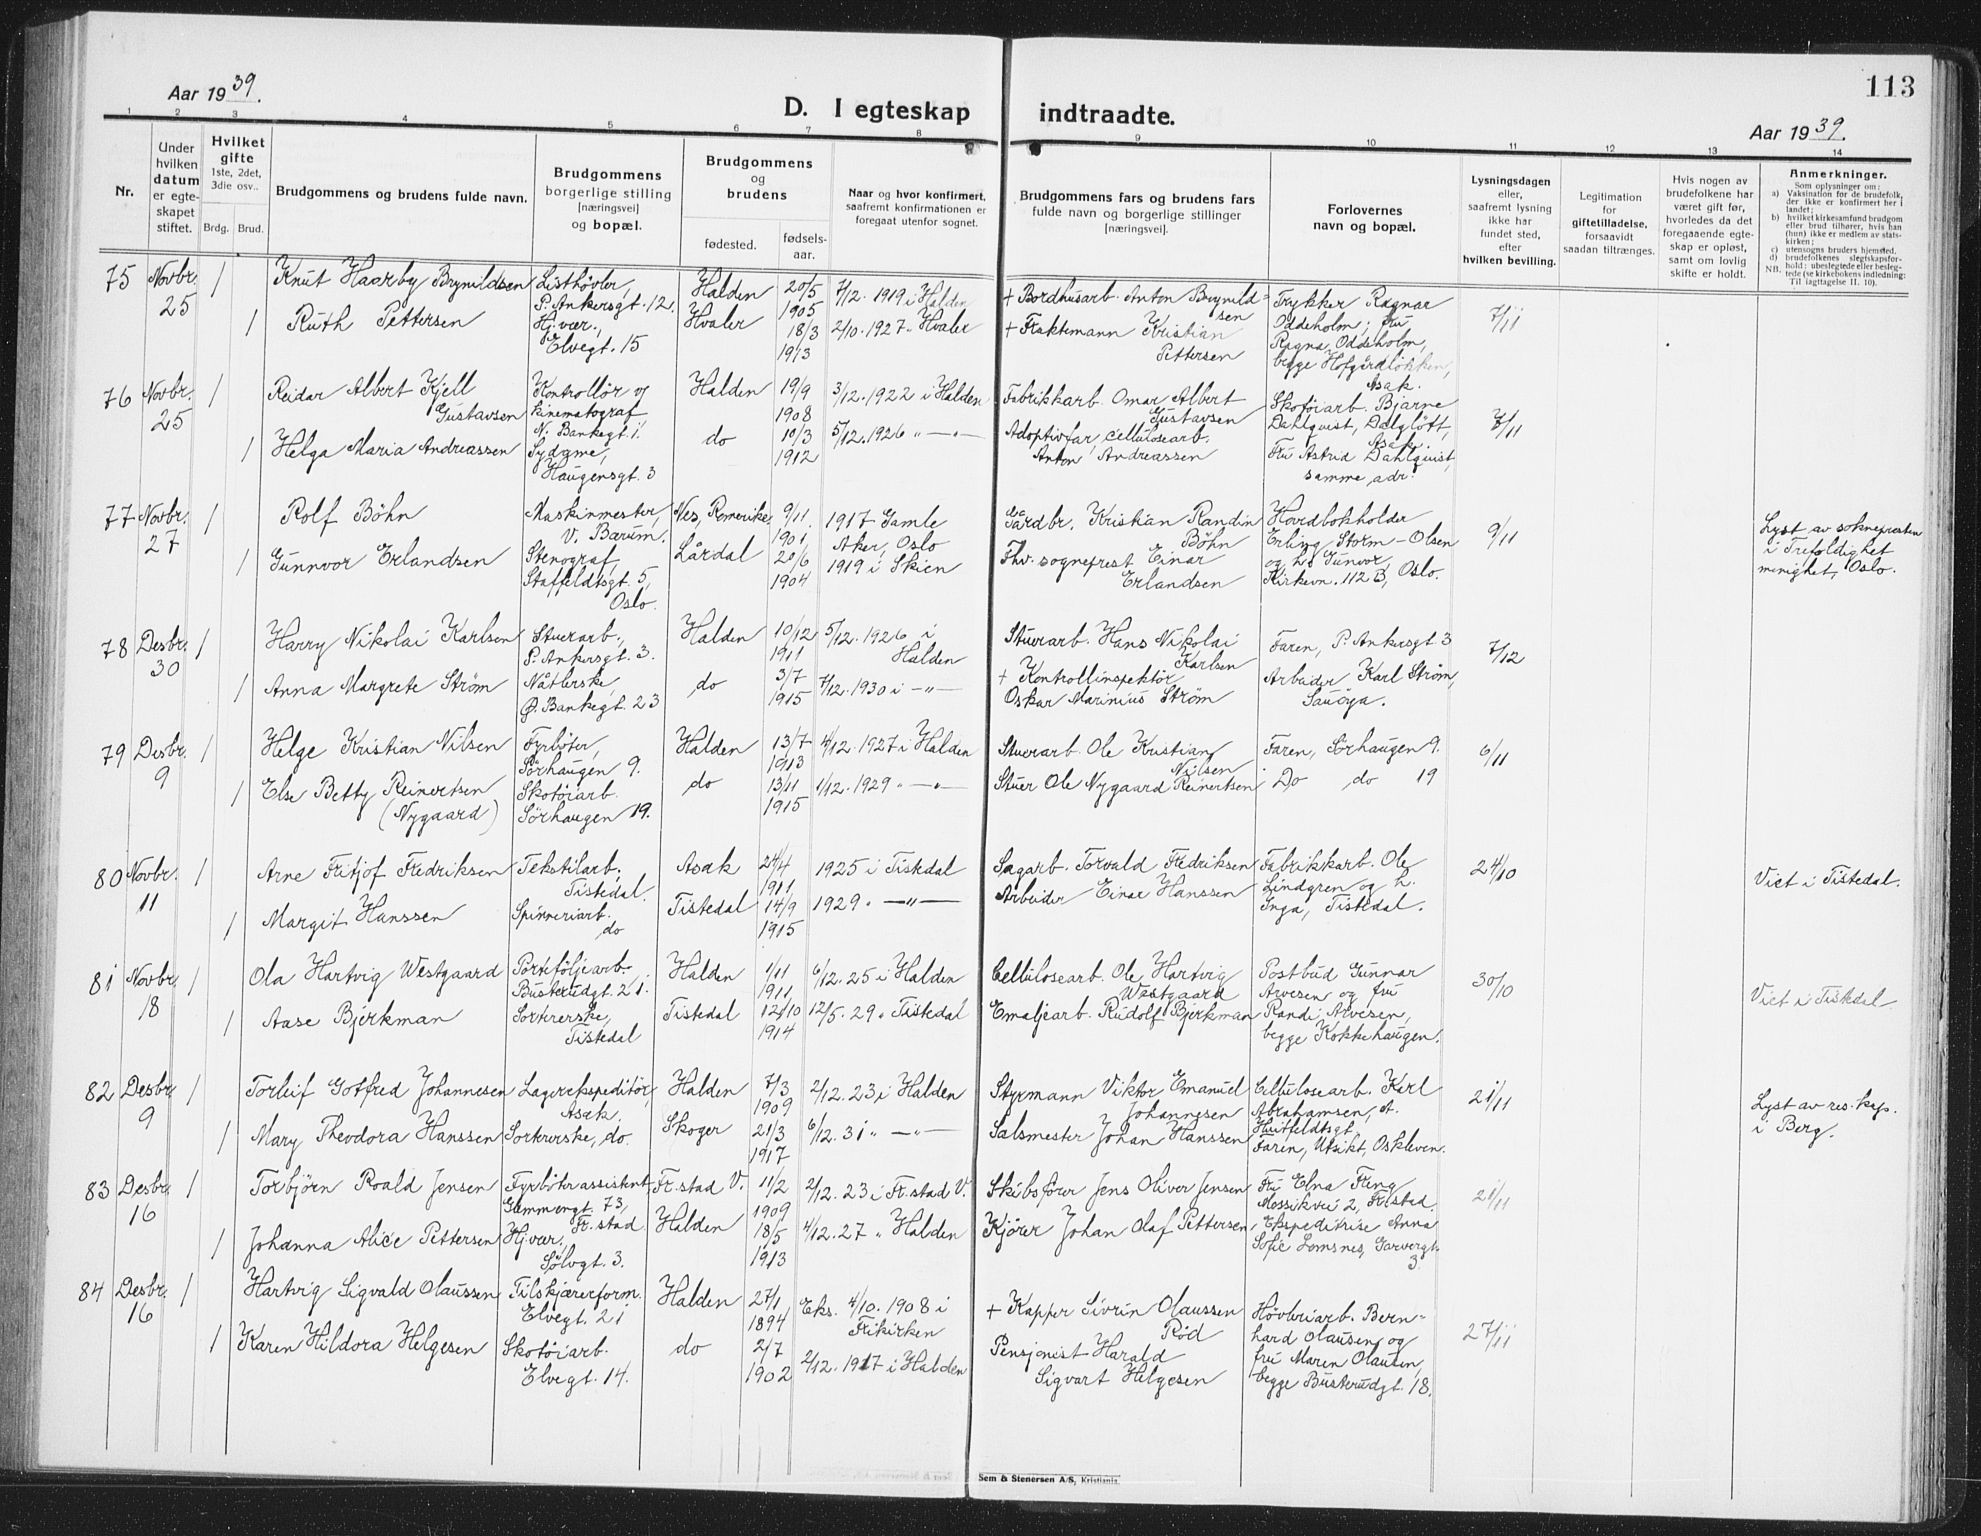 113
Aar 1939.
D. I egteskap indtraadte.
Aar 1939.
1 2 3 4 5 6 7 8 9 10 11 12 13 14
Nr.
Under hvilken datum er egteskapet stiftet.
Hvilket gifte 1ste, 2det, 3die osv..
Brdg. Brud.
Brudgommens og brudens fulde navn.
Brudgommens borgerlige stilling [næringsvei] og bopæl.
Brudgommens og brudens
fødested.
fødsels-aar.
Naar og hvor konfirmert, saafremt konfirmationen er foregaat utenfor sognet.
Brudgommens fars og brudens fars fulde navn og borgerlige stillinger [næringsvei].
Forlovernes navn og bopæl.
Lysningsdagen eller, saafremt lysning ikke har fundet sted, efter hvilken bevilling.
Legitimation for giftetilladelse, forsaavidt saadan tiltrænges.
Hvis nogen av brudefolkene har været gift før, hvorledes da det foregaaende egteskap er opløst, samt om lovlig skifte er holdt.
Anmerkninger.
Som oplysninger om:
a) Vaksination for de brudefolk, der ikke er konfirmert her i landet;
b) hvilket kirkesamfund brudgom eller brud tilhører, hvis han (hun) ikke er medlem av statskirken;
c) utensogns bruders hjemsted.
d) brudefolkenes slegtskapsforhold: ubeslegtede eller beslegtede (se kirkebokens indledning: Til iagttagelse II. 10).
NB.
75 Novbr. 25 1 Knut Haarby Brynildsen Listhøvler, P. Ankersgt. 12. Halden 20/5 1905 7/12. 1919 i Halden + Bordhusarb. Anton Brynildsen Trykker Ragnar Oddeholm; fru Ragna Oddeholm, begge Hofgårdløkken, Asak. 7/11
1 Ruth Pettersen Hj.vær., Elvegt. 15 Hvaler 18/3 1913 2/10. 1927 " Hvaler + Fraktemann Kristian Pettersen
76 Novbr. 25 1 Reidar Albert Kjell Gustavsen Kontrollør og kinematograf, N. Bankegt. 1. Halden 19/9 1908 3/12. 1922 i Halden Fabrikkarb. Omar Albert Gustavsen Skotøiarb. Bjarne Dahlquist, Dalgløtt, Asak. Fru Astrid Dahlquist, samme adr. 7/11
1 Helga Maria Andreassen Sydame, Haugensgt. 3 do 10/3 1912 5/12. 1926 " — " — Adoptivfar, cellulosearb. Anton Andreassen
77 Novbr. 27 1 Rolf Bøhn Maskinmester, V. Bærum. Nes, Romerike 9/11. 1901 1917 Gamle Aker, Oslo Gårdbr. Kristian Randin Bøhn Hovedbokholder Erling Storm-Olsen og h. Gunvor, Kirkevn. 112 B, Oslo. 9/11 Lyst av soknepresten i Trefoldighet menighet, Oslo.
1 Gunnvor Erlandsen Stenograf, Staffeldtsgt. 5, Oslo. Lårdal 20/6 1904 1919 i Skien Fhv. sogneprest Einar Erlandsen
78 Desbr. 30 1 Harry Nikolai Karlsen Stuerarb., P. Ankersgt. 3. Halden 10/12 1911 5/12. 1926 i Halden Stuerarb. Hans Nikolai Karlsen Faren, P. Ankersgt 3 7/12
1 Anna Margrete Strøm Nåtlerske, Ø. Bankegt. 23 do 3/7 1915 7/12. 1930 i — " — + Kontrollinspektör Oskar Marinius Strøm Arbeider Karl Strøm, Sauøya.
79 Desbr. 9 1 Helge Kristian Nilsen Fyrbøter, Sørhaugen 9. Halden 13/7 1913 4/12. 1927 i Halden Stuerarb. Ole Kristian Nilsen Faren, Sørhaugen 9. 6/11
1 Else Betty Reinertsen (Nygaard) Skotøiarb. Sørhaugen 19. do 13/11 1915 1/12. 1929 " — " — Stuer Ole Nygaard Reinertsen Do do 19
80 Novbr. 11 1 Arne Fritjof Fredriksen Tekstilarb. Tistedal. Asak 24/4 1911 1925 i Tistedal Sagarb. Torvald Fredriksen Fabrikkarb. Ole Lindgren og h. Inga, Tistedal. 24/10 Viet i Tistedal.
1 Margit Hanssen Spinneriarb. do Tistedal 14/9 1915 1929 " — " — Arbeider Einar Hanssen
81 Novbr. 18 1 Ola Hartvig Westgaard Porteføljearb. Busterudgt. 21. Halden 1/11 1911 6/12. 25 i Halden Cellulosearb. Ole Hartvig Westgaard Postbud Gunnar Arvesen og fru Randi Arvesen, begge Kokkehaugen. 30/10 Viet i Tistedal
1 Aase Bjerkman Sortererske, Tistedal Tistedal 12/10 1914 12/5. 29 " Tistedal Emaljearb. Rudolf Bjerkman
82 Desbr. 9 1 Torleif Gotfred Johannesen Lagerekspeditør, Asak. Halden 7/3 1909 2/12. 23 i Halden Styrmann Viktor Emanuel Johannesen Cellulosearb. Karl Abrahamsen, A. Huitfeldtsgt. Faren, Utsikt, Oskleven. 21/11 Lyst av res. kap. i Berg.
1 Mary Theodora Hanssen Sortererske, do. Skoger 21/3 1917 6/12. 31 " — " — Salsmester Johan Hanssen
83 Desbr. 16 1 Torbjörn Roald Jensen Fyrbøterassistent, Gammengt. 73, Fr.stad Fr.stad V. 11/2 1909 2/12. 23 i Fr.stad V. Skibsfører Jens Oliver Jensen Fru Elna Fleng Mossikvei 2, Fr.stad. Ekspeditrise Anna Sofie Lomsnes, Garvergt. 3. 21/11
1 Johanna Alice Pettersen Hj.vær. Sølvgt. 3. Halden 18/5 1913 4/12. 27 " Halden Kjører Johan Olaf Pettersen
84 Desbr. 16 1 Hartvig Sigvald Olaussen Tilskjærerform. Elvegt. 21 Halden 27/1 1894 Eks. 4/10. 1908 i Frikirken + Kapper Sivrin Olaussen Rød Høvleriarb. Bernhard Olausen og fru Maren Olausen, begge Busterudgt. 18. 27/11
1 Karen Hildora Helgesen Skotøiarb. Elvegt. 14. do 2/7 1902 2/12. 1917 i Halden Pensjonist Harald Sigvart Helgesen
Sem & Stenersen A/S, Kristiania.